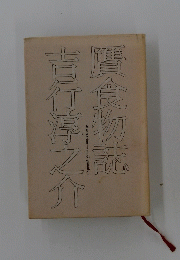 贋食物誌
吉行淳之介